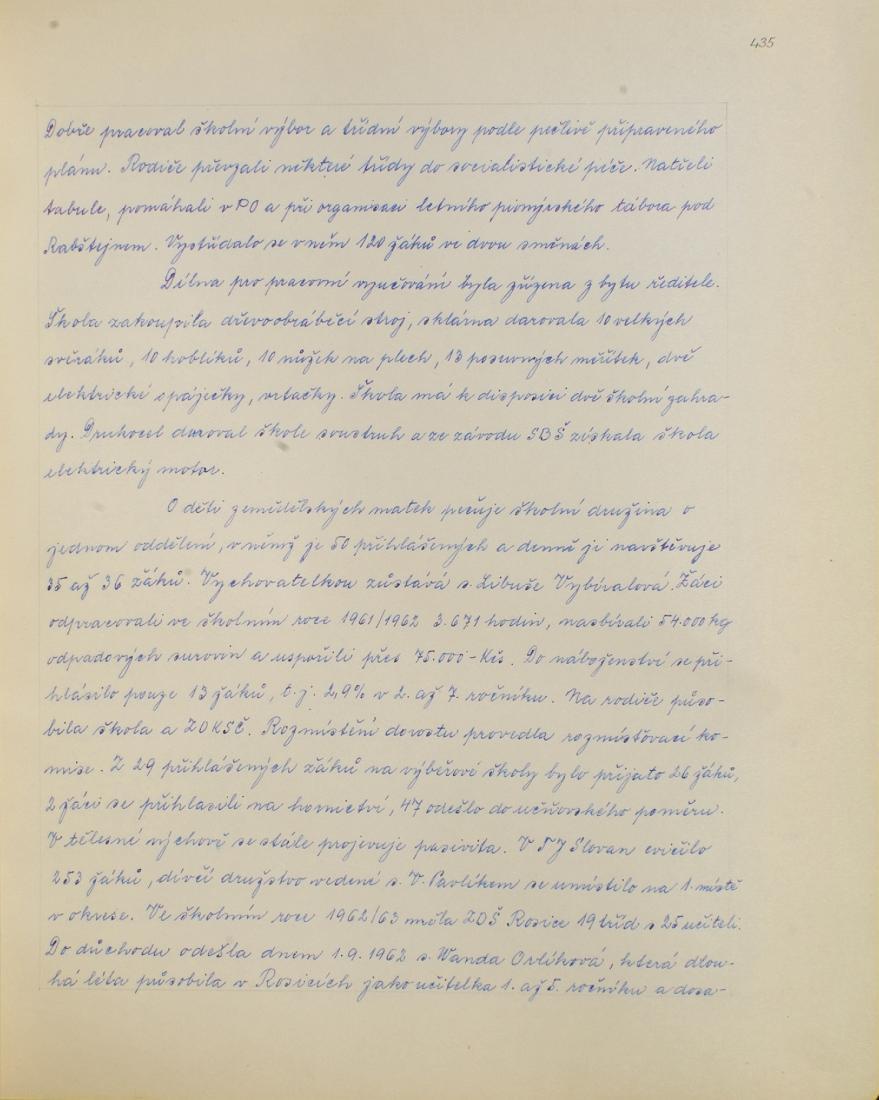 435
Dobře pracoval školní výbor a třídní výbory podle pečlivě připraveného
plánu. Rodiče převzali některé třídy do socialistické péče. Natřeli
tabule, pomáhali v PO a při organisaci letního pionýrského tábora pod
Rabštejnem. Vystřídalo se v něm 120 žáků ve dvou směnách.
Dílna pro pracovní vyučování byla zřízena z bytu ředitele.
Škola zakoupila dřevoobráběcí stroj, sklárna darovala 10 velkých
svěráků, 10 hoblíků, 10 nůžek na plech, 13 posuvných měřítek, dvě
elektrické spáječky, vrtačky. Škola má k disposici dvě školní zahra-
dy. Druhocel daroval škole soustruh a ze závodu SBŠ získala škola
elektrický motor.
O děti zemědělských matek pečuje školní družina o
jednom oddělení, v němž je 50 přihlášených a denně ji navštěvuje
35 až 36 žáků. Vychovatelkou zůstává s. Libuše Vybíralová. Žáci
odpracovali ve školním roce 1961/1962 3.671 hodin, nasbívali 54.000 kg
odpadových surovin a uspořili přes 75.000 - Kčs. Do náboženství se při-
hlásilo pouze 13 žáků, t. j. 2,9% v 2. až 7. ročníku. Na rodiče půso-
bila škola a ZO KSČ. Rozmístění dorostu provedla rozmísťovací ko-
mise. Z 29 přihlášených žáků na výběrové školy bylo přijato 26 žáků,
2 žáci se přihlasili na hornictví, 47 odešlo do učňovského poměru.
V tělesné výchově se stále projevuje pasivita. V TJ Slovan cvičilo
253 žáků, dívčí družstvo vedené s. V. Pavlíkem se umístilo na 1. místě
v okrese. Ve školním roce 1962/63 měla ZDŠ Rosice 19 tříd s 25 učiteli.
Do důchodu odešla dnem 1.9.1962 s. Wanda Orlíková, která dlou-
há léta působila v Rosicích jako učitelka 1. až 5. ročníku a dosa-